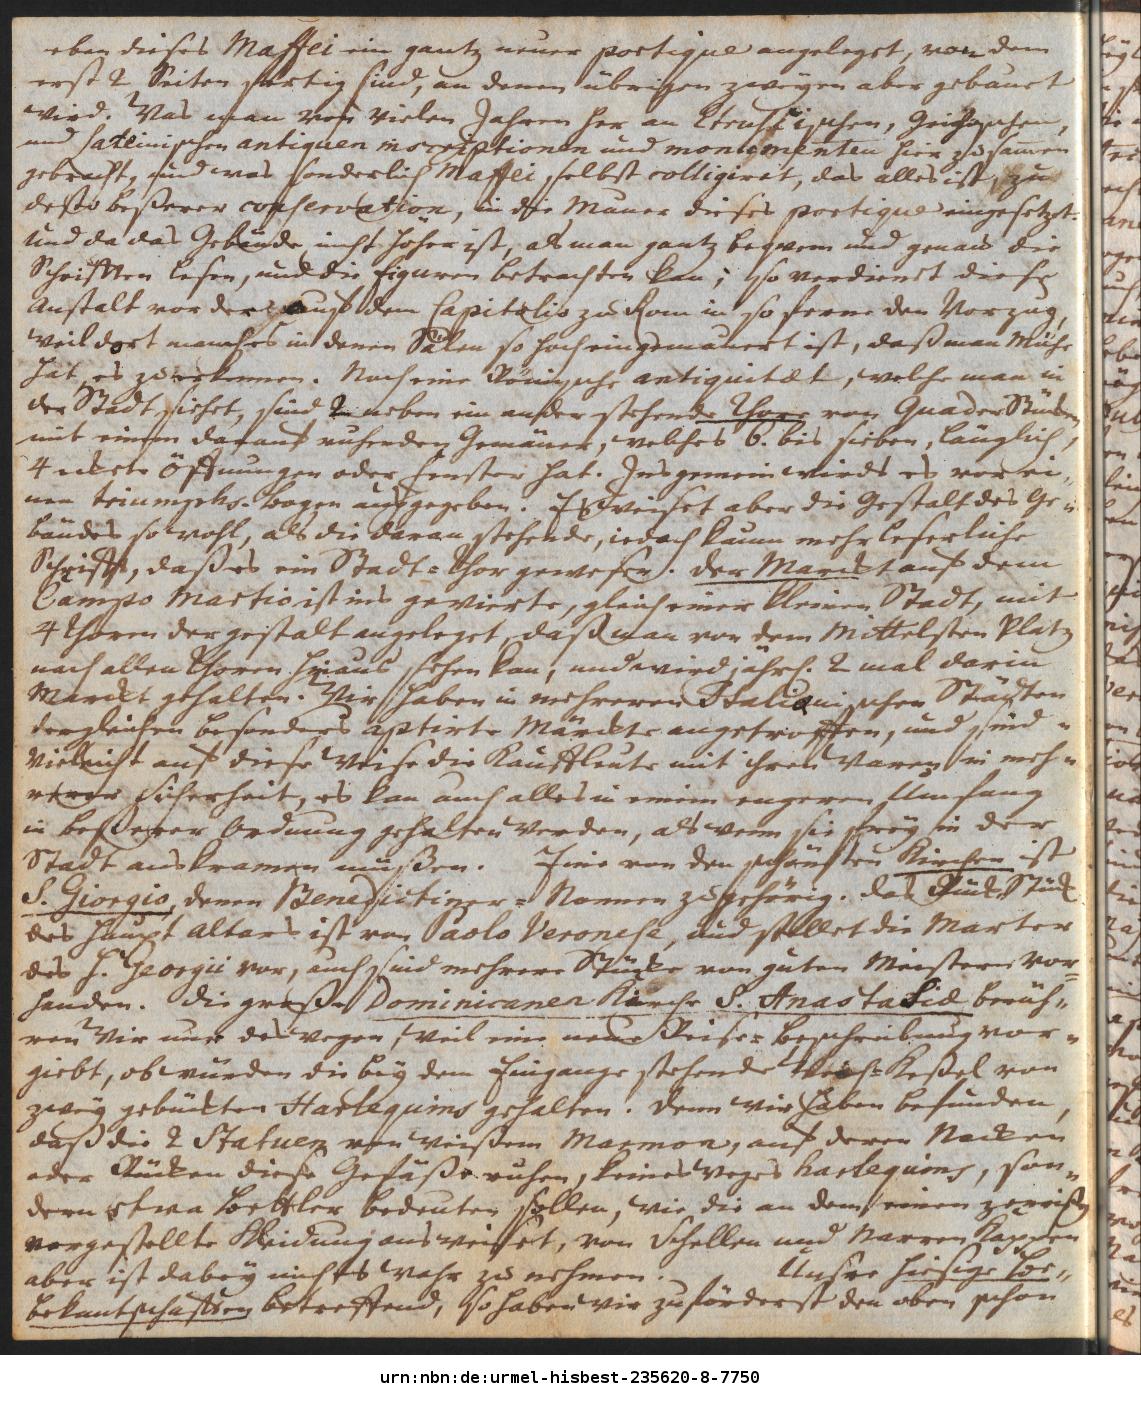 eben dieses Maffei ein gantz neuer portique angeleget, von dem
erst 2 Seiten fertig sind, an denen übrigen zweyen aber gebauet
wird. Was man von vielen Jahren her an Etruscischen, Grichischen,
und Lateinischen antiquen inscriptionen und monumenten hier zusamen
gebracht, und was sonderlich Maffei selbst colligiret, das alles ist, zu
desto beßerer conservation, in die Mauer dieses portique eingesetzt
Und da das Gebäude nicht höher ist, als man gantz beqvem und genau die
Schrifften lesen, und die figuren betrachten kan; so verdienet diese
Anstalt vor der auf dem Capitolio zu Rom in so ferne den Vorzug,
weil dort manches in denen Sälen so hoch eingemauert ist, daß man Mühe
hat es zu erkennen. Noch eine Römische antiquitæt, welche man in
der Stadt siehet, sind 2 neben ein ander stehende Thore von Quader Stücken
mit einem darauf ruhenden Gemäuer, welches 6. bis sieben, länglich,
4 eckete Öffnungen oder Fenster hat. Insgemein wird es vor ei,,
nen triumphs-bogen ausgegeben. Es weiset aber die Gestalt des Ge,,
bäudes so wohl, als die daran stehende, iedoch kaum mehr leserliche
Schrifft, daß es ein Stadt-Thor gewesen. Der Marckt auf dem
Campo Martio ist ins gevierte, gleich einer kleinen Stadt, mit
4 Thoren dergestalt angeleget, daß man von dem mittelsten Platz
nach allen Thoren hinaus sehen kan, und wird jährl. 2 mal darin
Marckt gehalten. Wir haben in mehreren Italiänischen Städten
dergleichen besonders aptirte Märckte angetroffen, und sind
vielleicht auf diese Weise die Kauffleute mit ihren Waren in meh,,
rerer Sicherheit, es kan auch alles in einem engeren Umfang
in beßerer Ordnung gehalten werden, als wenn sie frey in der
Stadt auskramen müßen. Eine von den schönsten Kirchen ist
S. Giorgio, denen Benedictiner-Nonnen zugehörig. Das Stück
des haupt altars ist von Paolo Veronese, und stellet die Marter
des H. Georgii vor, auch sind mehrere Stücke von guten Meistern vor-
handen. Die große Dominicaner Kirche S. Anastasiæ berüh,,
ren Wir nur deswegen, weil eine neue Reise-beschreibung vor,,
giebt, ob wurden die bey dem Eingange stehende Weih-Keßel von
zwey gebückten Harlequins gehalten. Denn wir haben befunden,
daß die 2 Statuen von weißem Marmor, auf deren Nacken
oder Rücken diese Gefäße ruhen, keines weges harlequins, son,,
dern etwa Bettler bedeuten sollen, wie die an dem einen zerrißen
vorgestellte Kleidung ausweiset, von Schellen und Narren Kappen
aber ist dabey nichts wahr zu nehmen. Unsre hiesige
bekantschafften betreffend, so haben wir zuförderst den oben schon
urn:nbn:de:urmel-hisbest-235620-8-7750